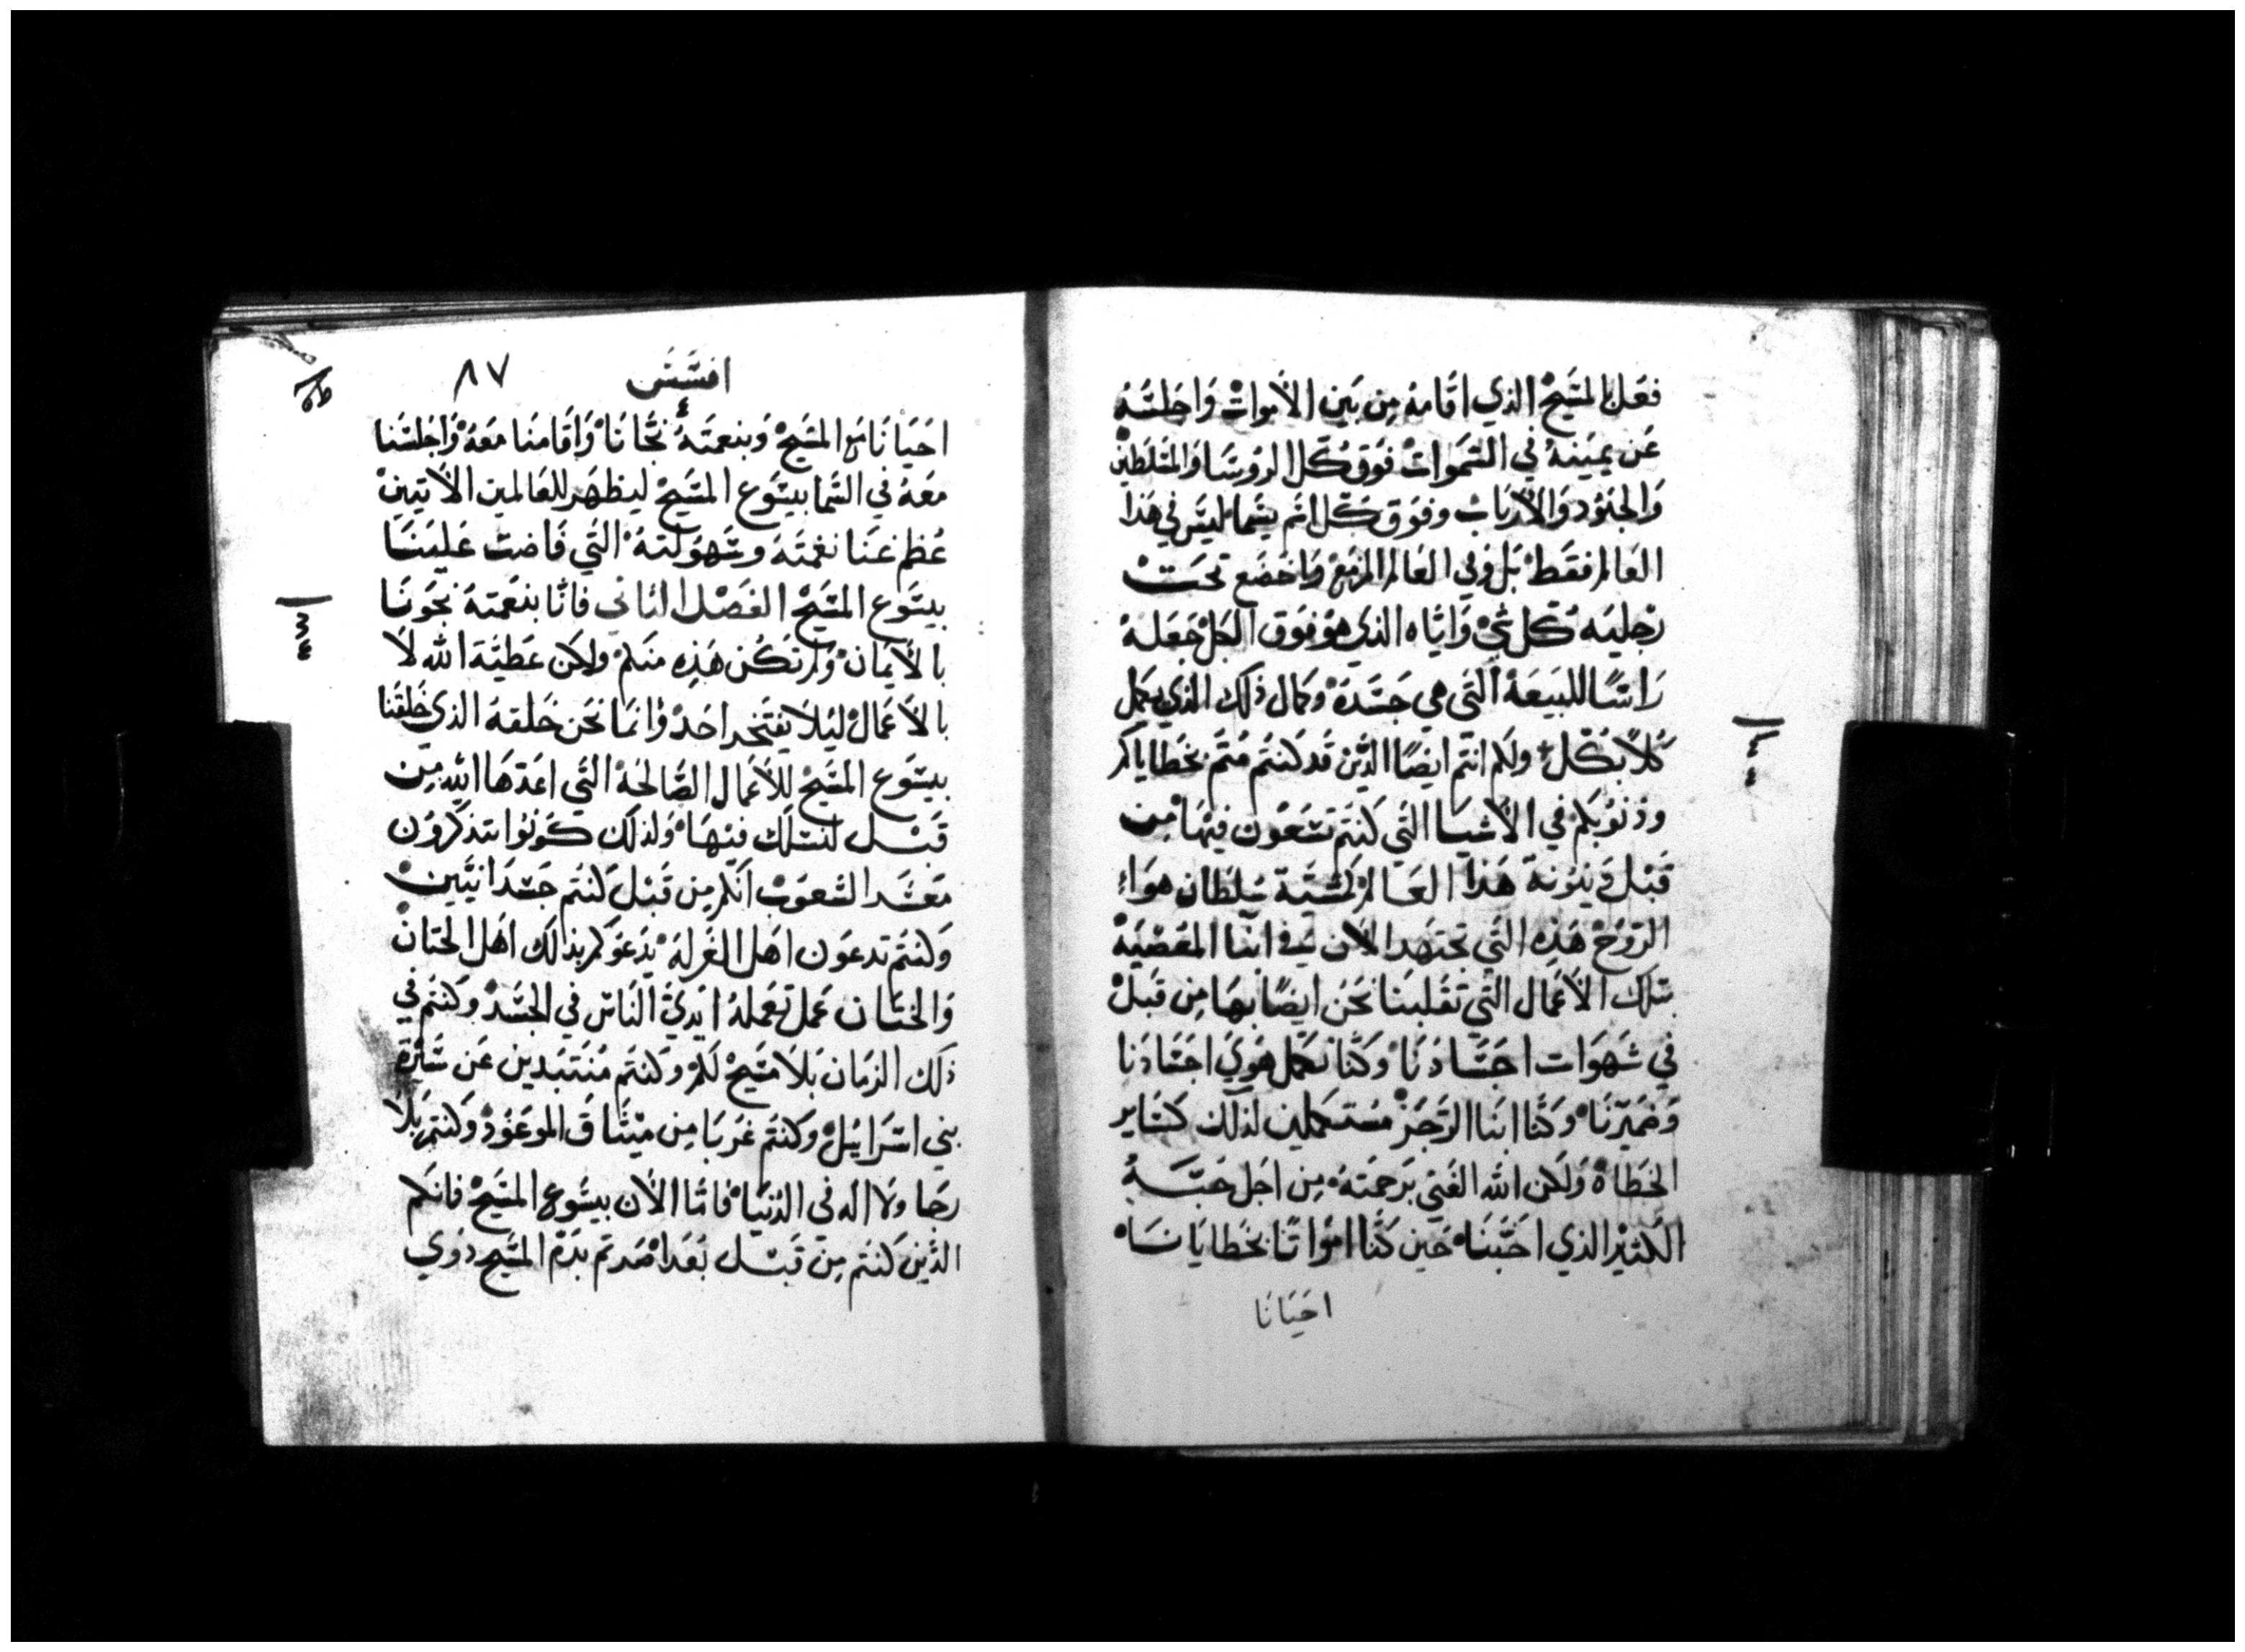 فعل بالمسَيح الذي اقامهُ مِن بَين الأموات وَاجلسَهُ
عَن يميَنهُ في السَموات فوَق كَل الروسَا وَالمسَلطين
وَالجنوُد وَالأربَاب وفوَق كَل اسَم يسَما ليسَ في هَذا
العَالم فقَط بَل وَفي العَالم المزمع وَاخضَع تحَت
رجليَه كل شي وَاياه الذي هوَ فوَق الكل جَعَلهُ
رَاسًا للبيَعَة التَي هي جَسَدهَ وكمال ذلك الذي يكمل
كُلاً بَكل ولكم انتم ايضًا الذَين قَد كَنتم مُتم بخطاياكم
وذنوُبكم في الأشيَا التَي كنتم تسَعَون فيهَا مِن
قَبل دينونة هَذا العَالم كمشَية سُلطَان هوَاء
الروَح هَذِه التَي تجتهَد الأن في ابنَا المعَصيَة
بتلك الأعَمال التَي تقَلبنَا نحَن ايضًا بهَا مِن قَبل
في شهَوَات اجسَادنَا وكَنا نعَمل هوَي اجسَادَنا
وَضميَرنَا وَكَنا ابنَا الرَجَز مستَكملين لذلك كسَاير
الخَطاة وَلكن الله الغَني بَرحمَتهَ مِن اجل حبَه
الكثير الذي احَبنَا حَين كَنا امَواتًا بخَطايَانَا
احيَانَا
افسَسَ ٨٧
احيَانَا مع المسَيح وَبنعمَتهُ نجانَا وَاقَامنَا معَهُ وَاجلسَنا
معَهُ في السَما بيسَوَع المسَيح ليظهَر للعَالمين الأتيين
عُظم غنَا نعمتَهُ وسَهوَلتهُ التَي فَاضت عَليَنَا
بيسَوع المسَيح الفصَل الثاني فانا بنعَمتهُ نجوَنَا
بالأيمان ولم تكُن هَذِه منَكم ولكن عَطيَة الله لاَ
بالأعَمال ليَلا يفتَخر احَد وَانما نحَن خَلقهُ الذي خَلقَنا
بيسَوَع المسَيح للأعَمال الصَالحَة التَي اعَدهَا الله مِن
قَبل لنسَلك فيهَا ولذلك كوَنوُا تتذكروُن
معَشر الشعوَب انكم مِن قَبل كنتم جَسَدانييَن
وكنتم تدعوَن اهَل الغَرلهَ يدَعوَكم بذلك اهَل الختان
وَالختَان عَمل تعَملهُ ايَدي النَاس في الجسَد وكَنتم في
ذلك الزمَان بَلا مسَيح لكم وكَنتم مُنتَبَذين عَن سَيرَة
بني اسَرَايل وكَنتم غَربَا مِن ميثَاق الموَعَوُد وكنتم بَلاَ
رجَا ولا اله في الدُنيا فامَا الأن بيسَوع المسَيح فانكم
الذَين كنتم مِن قبَل بعَدا صَرتم بدَم المسَيح ذوي